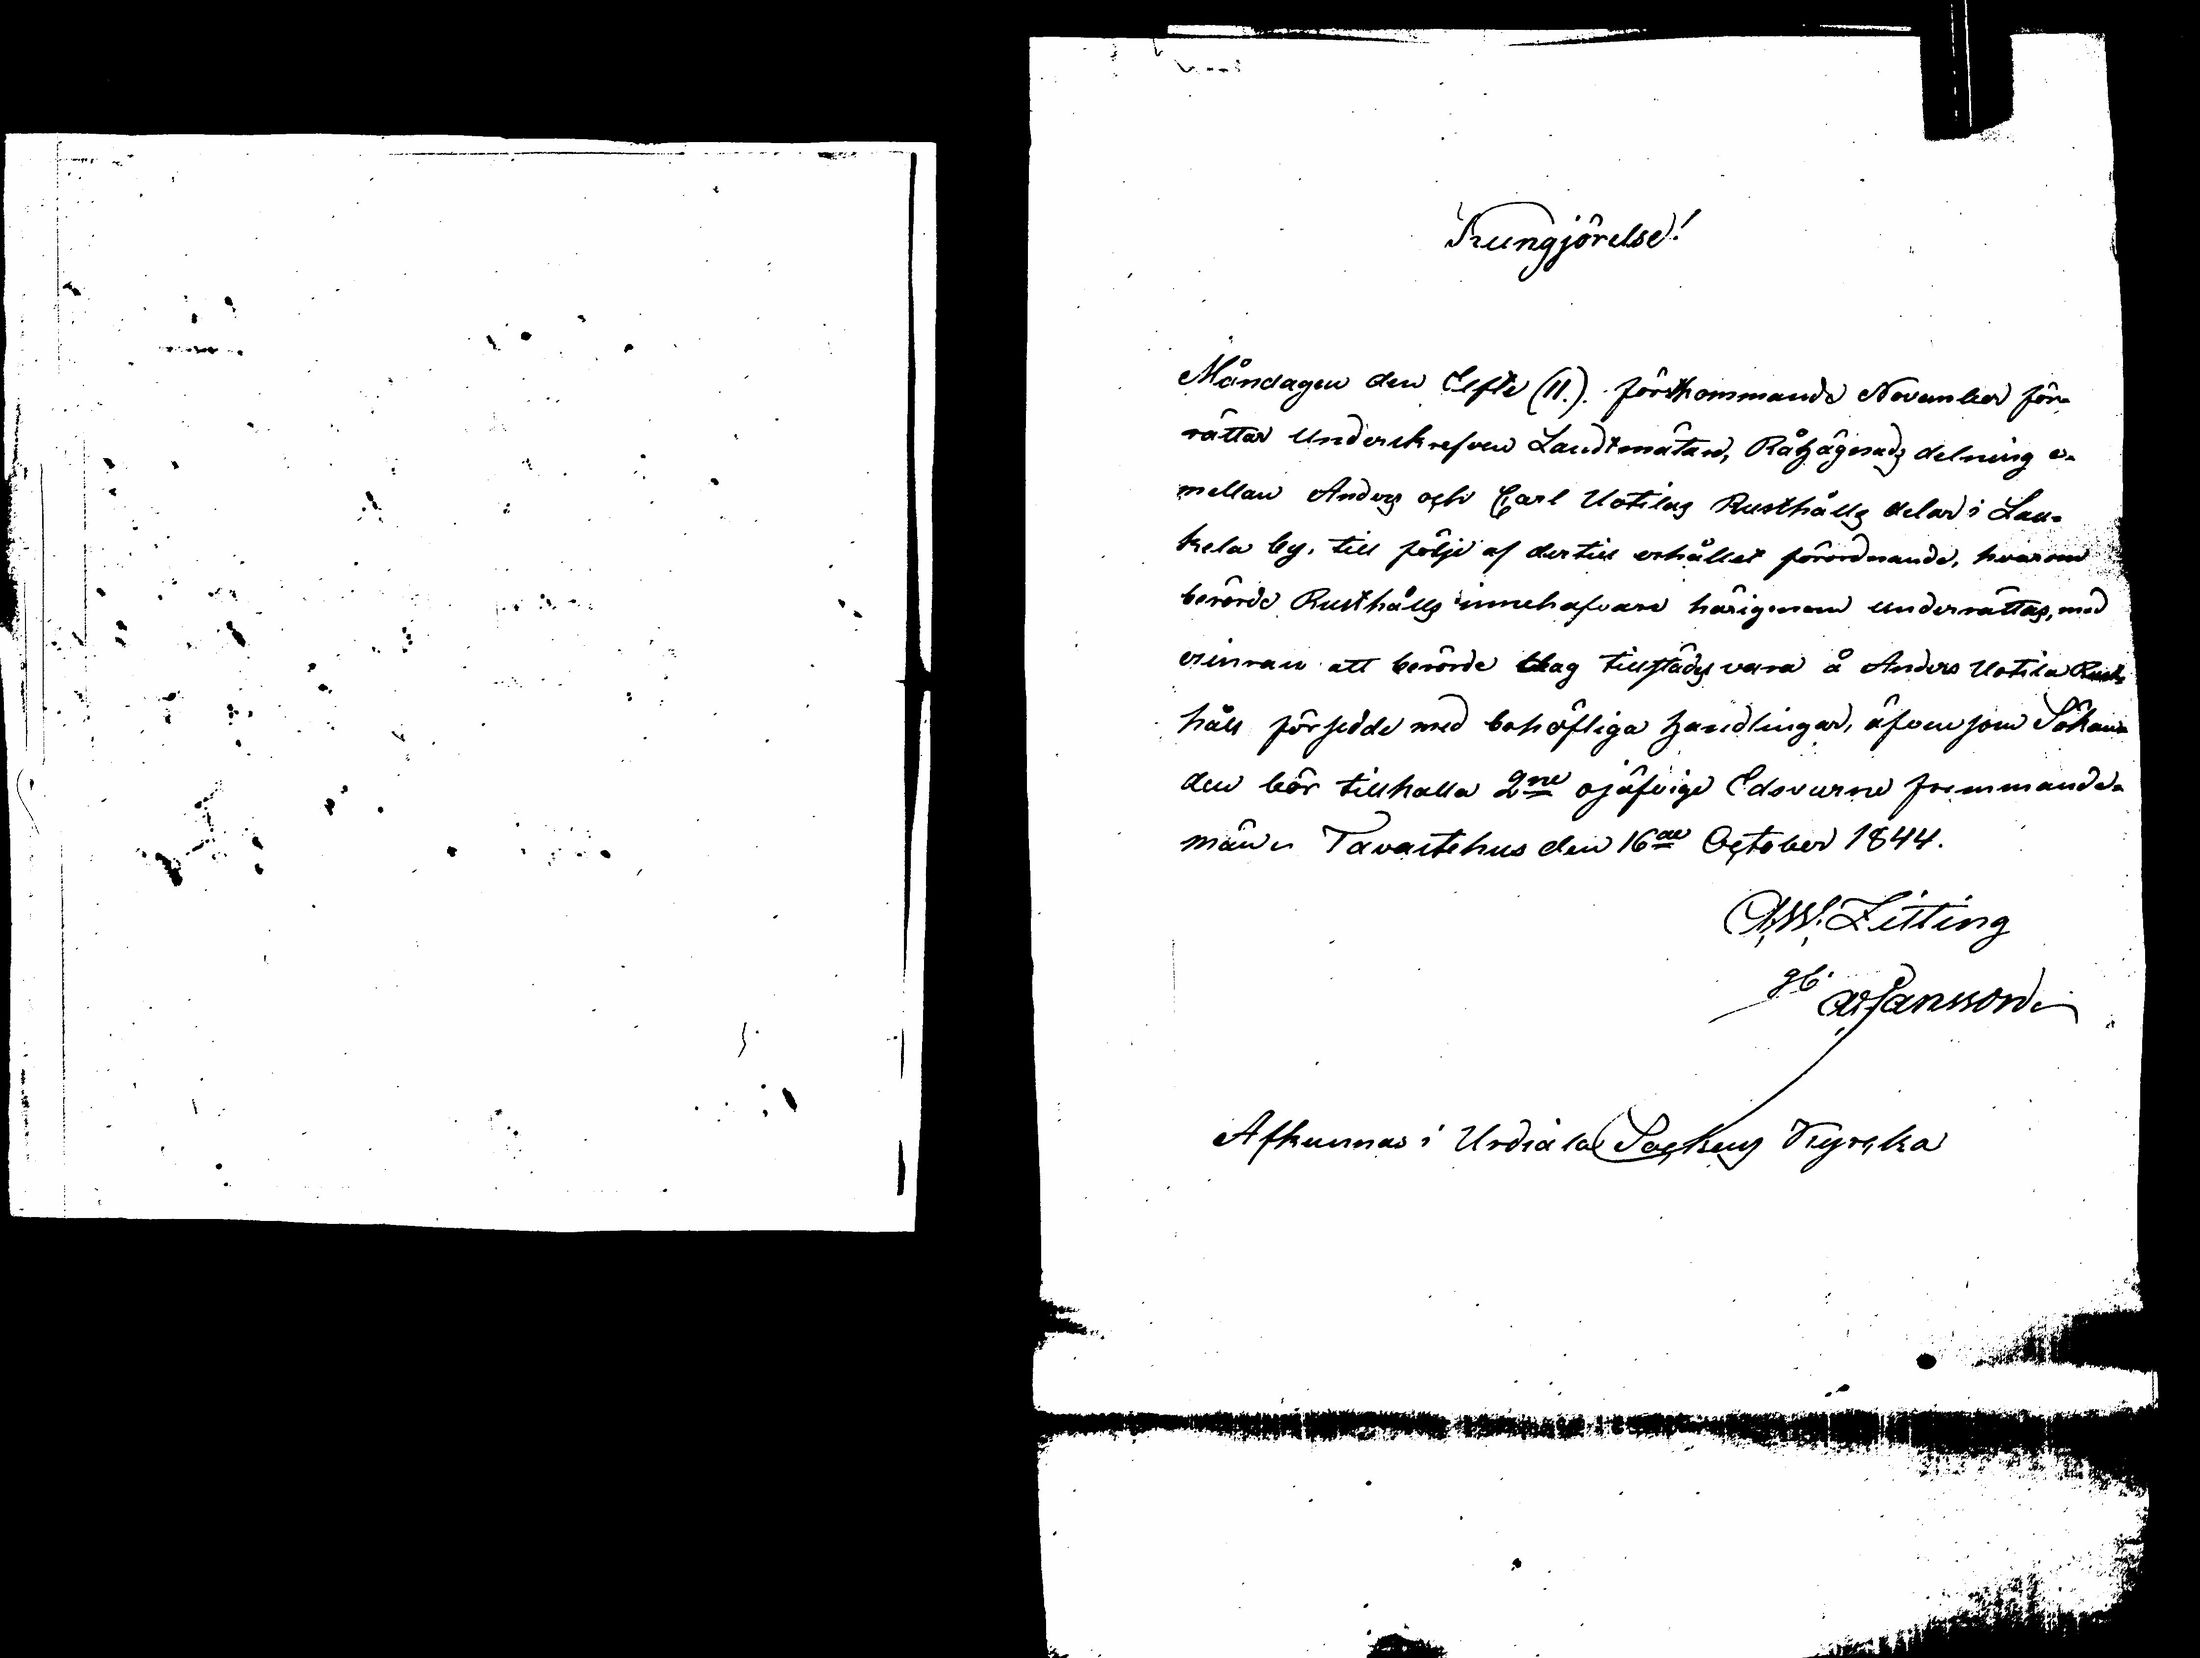 Kungjörelse!
Måndagen den Elfte (11.). förstkommande November för-
rättar Underskrefven Landtmätare, Råhägnads delning e-
mellan Anders och Carl Uotilas Rusthålls delar i Lau-
kela by, till följe af dertill erhållet förordnande, hvarom
berörde Rusthålls innehafvare härigenom underrättas, med
erinran att berörde dag tillstädes vara å Anders Uotila Rust-
håll försedde med behöfliga handlingar, äfvensom Sökan-
den bör tillkalla 2ne ojäfvige Edsvurne fremmande-
män. Tavastehus den 16de October 1844.
A.W. Zitting
gb. A Jansson
Afkunnas i Urdiala Sockens Kyrcka